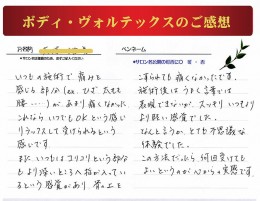 ボディ・ヴォルテックスのご感想
お名前
ペンネーム
いつもの施術で痛みを
感じる部分(ex. ひざ 太もも
腰・・・)が、あまり痛くなかった。
これなら いつでもOKという感じ
リラックスして受けられるという
感じです。
またいつもはコリコリという部分
もより深いところへ指が入ってい
るという感覚があり 骨の上を
こすられても痛くなかったです。
施術後は うまく言葉では
表現できないが、スッキリ いつもより
より良い感覚でした。
なんというか、とても不思議な
体験でした。
この方法だったら 何回受けても
よいというのが 心からの実感です。